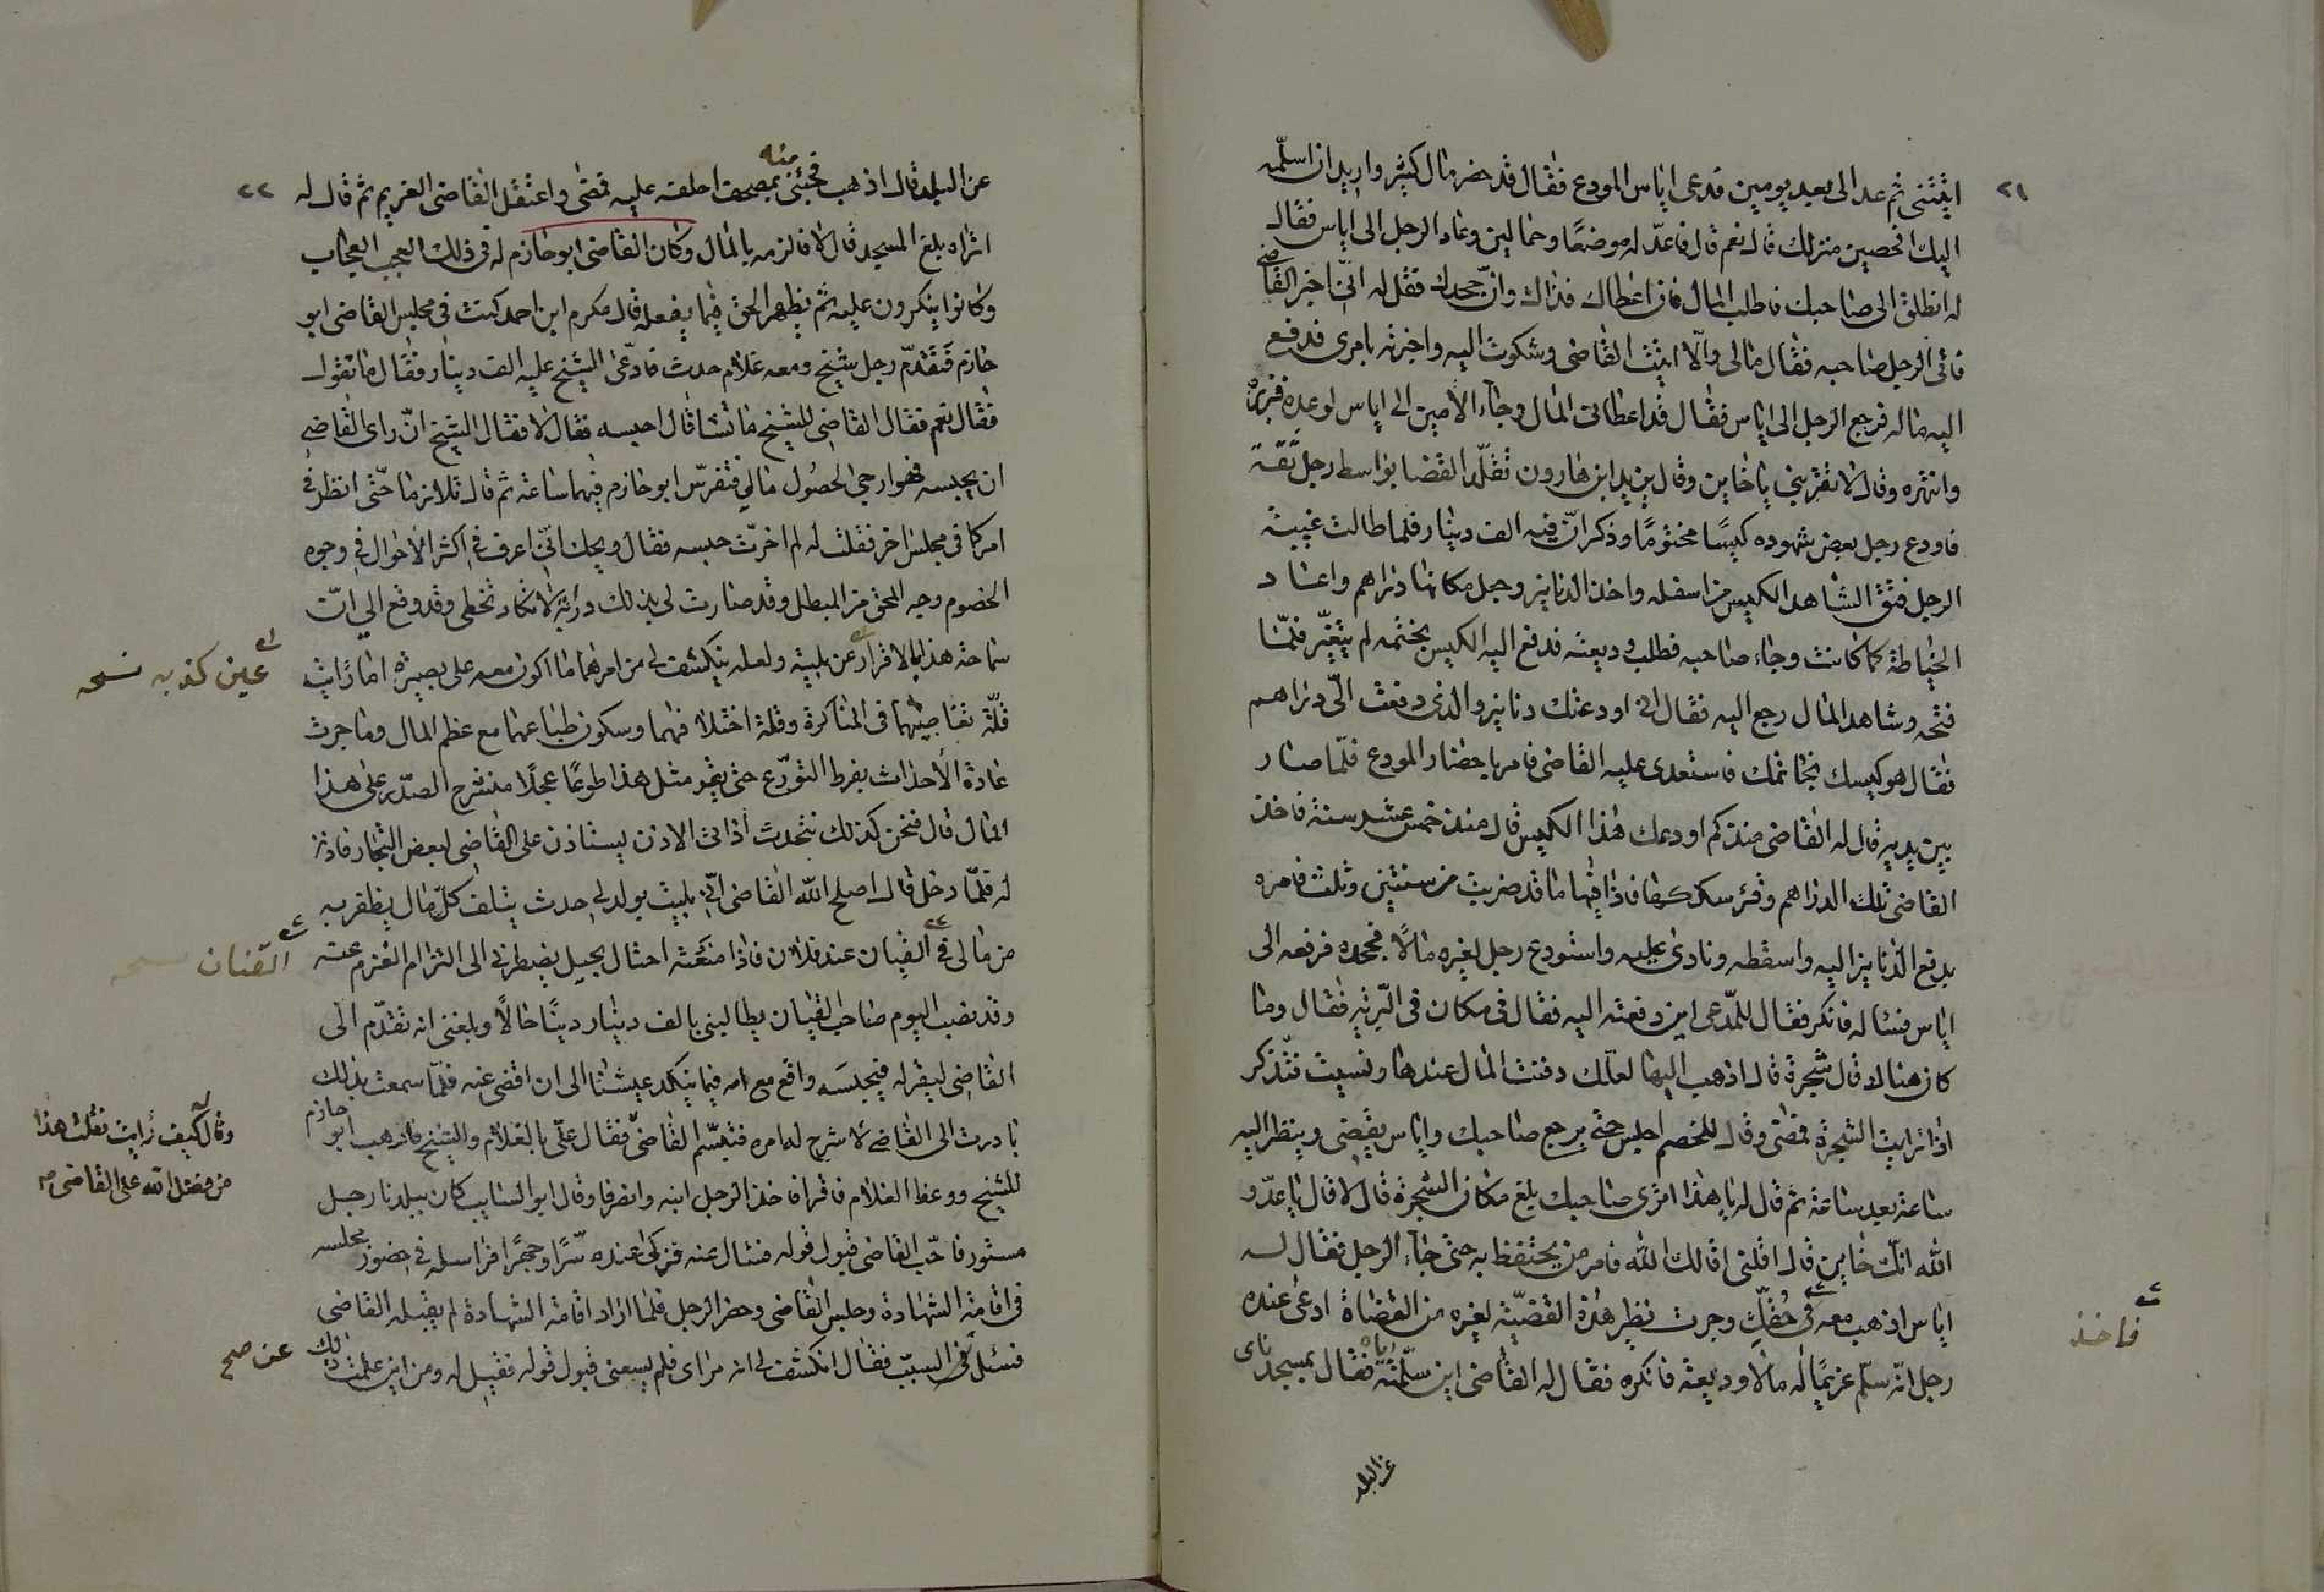 ٢١
اتيتني ثم عد الي بعد يومين فدعى اياس المودع فقال قد حضر مال كثير واريد ان اسلّمه
اليك افحصين منزلك قال نعم قال فاعدّ له موضعًا وحمالين وعاد الرجل الى اياس فقال
له انطلق الى صاحبك فاطلب المال فان اعطاك فذاك وان جحدك فقل له انّي اخبر القاضي
فاتى الرجل صاحبه فقال مالي والّا اتيت القاضي وشكوت اليه واخبرته بامري فدفع
اليه ماله فرجع الرجل الى اياس فقال قد اعطاني المال وجاء الامين الى اياس لوعده فزبره
وانتهره وقال لا تقربني يا خاين وقال يزيد ابن هارون تقلّد القضا بواسط رجل ثقة
فاودع رجل بعض شهوده كيسًا مختومًا وذكر انّ فيه الف دينار فلما طالت غيبة
الرجل فتق الشاهد الكيس من اسفله واخذ الدنانير وجعل مكانها دراهم واعاد
الخياطة كما كانت وجاء صاحبه فطلب وديعته فدفع اليه الكيس بختمه لم يتغيّر فلمّا
فتحه وشاهد المال رجع اليه فقال اني اودعتك دنانير والذي دفعت الّي دراهم
فقال هو كيسك بخاتمك فاستعدى عليه القاضي فامر باحضار المودع فلمّا صار
بين يديه قال له القاضي منذ كم اودعك هذا الكيس قال منذ خمس عشر سنة فاخذ
القاضي تلك الدراهم وقرء سككها فاذا فيها ما قد ضربت من سنتين وثلث فامره
بدفع الدنانير اليه واسقطه ونادى عليه واستودع رجل لغيره مالًا فجحده فرفعه الى
اياس فسئاله فانكر فقال للمدّعي اين دفعته اليه فقال في مكان في البّرية فقال وما
كان هناك قال شجرة قال اذهب اليها لعلّك دفنت المال عندها ونسيت فتذكر
اذا رايت الشجرة فمضى وقال للخصم اجلس حتى يرجع صاحبك واياس يقضي وينظر اليه
ساعة بعد ساعة ثم قال له يا هذا اترى صاحبك بلغ مكان الشجرة قال لا قال يا عدّو
الله انّك خاين قال اقلني اقالك الله فامر من يحتفظ به حتى جاء الرجل فقال له
اياس اذهب معه فخذ حقّك وجرت نظير هذه القضيّة لغيره من القضاة ادعى عنده
فاخذ
رجل انّه سلّم غريمًا له مالًا وديعة فانكره فقال له القاضي اين سلّمته اياه فقال بمسجد ناي
عن البلد
٢٢
عن البلد قال اذهب فجئني منه بمصحف احلفه عليه فمضى واعتقل القاضي الغريم ثم قال له
اتراه بلغ المسجد قال لا فالزمه بالمال وكان القاضي ابو حازم له في ذلك العجب العجاب
وكانوا ينكرون عليه ثم يظهر الحق فيما يفعله قال مكرم ابن احمد كنت في مجلس القاضي ابو
حازم فتقدّم رجل شيخ ومعه غلام حدث فادّعى الشيخ عليه الف دينار فقال ما تقول
فقال نعم فقال القاضي للشيخ ما تشا قال احبسه فقال لا فقال الشيخ انّ راى القاضي
ان يحبسه فهو ارجى لحصُول مالي فتفرّس ابو حازم فيهما ساعة ثم قال تلازما حتّى انظر في
امركما في مجلس اخر فقلت له لم اخرّت حبسه فقال ويحك انّي اعرف في اكثر الاحوال في وجوه
الخصوم وجه المحق من المبطل وقد صارت لي بذلك دراية لا تكاد تخطي وقد وقع الي انّ
سماحة هذا بالاقرار عن بلية ولعله ينكشف لي من امرهما ما اكون معه على بصيرة اما رايت
عين كذبه نسخه
قلّة تغاضبهما في المناكرة وقلة اختلافهما وسكون طباعهما مع عظم المال وما جرت
عادة الأحداث بفرط التورّع حتى يقر مثل هذا طوعًا عجلًا منشرح الصدر على هذا
المال قال فنحن كذلك نتحدث اذ اتى الاذن يستاذن على القاضي لبعض التجار فاذن
له فلمّا دخل قال اصلح الله القاضي انّي بليت بولد لي حدث يتلف كلّ مال يظفر به
من مالي في القيان عند فلان فاذا منعته احتال بحيل يضطرني الى التزام الغرم عنه
القنان نسخه
وقد نصب اليوم صاحب القيان يطالبني بالف دينار دينًا حالًا وبلغني انه تقدّم الى
القاضي ليقر له فيحبسَه واقع مع امه فيما ينكد عيشنا الى ان اقضي عنه فلمّا سمعت بذلك
بادرت الى القاضي لاشرح له امره فتبسّم القاضي فقال علّي بالغلام والشيخ فارهب ابو حازم
وقال كيف رايت فقلت هذا
من فضل الله على القاضي
للشيخ ووعظ الغلام فاقرا فاخذ الرجل ابنه وانصرفا وقال ابو السايب كان ببلدنا رجل
مستور فاحّب القاضي قبول قوله فسئال عنه فزكى عنده سّرًا وجهرًا فراسله في حضور مجلسه
في اقامة الشهادة وجلس القاضي وحضر الرجل فلما اراد اقامة الشهادة لم يقبله القاضي
فسئل عن السبّب فقال انكشف لي انه مراى فلم يسعني قبول قوله فقيل له ومن اين علمت ذلك
عن صح